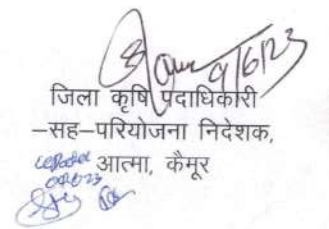 9/6/23
जिला कृषि पदाधिकारी
–सह–परियोजना निदेशक,
आत्मा, कैमूर